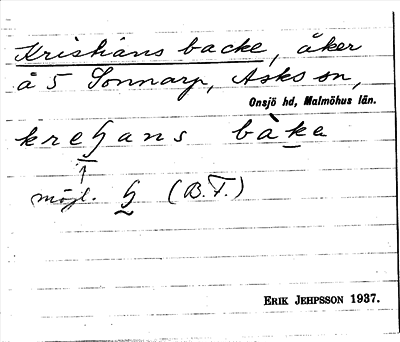 Kristians backe, åker
å 5 Sonnarp, Asks sn,
Onsjö hd, Malmöhus län.
kreɧans bàke
↑
möjl. ɧ (B.F.)
ERIK JEHPSSON 1937.